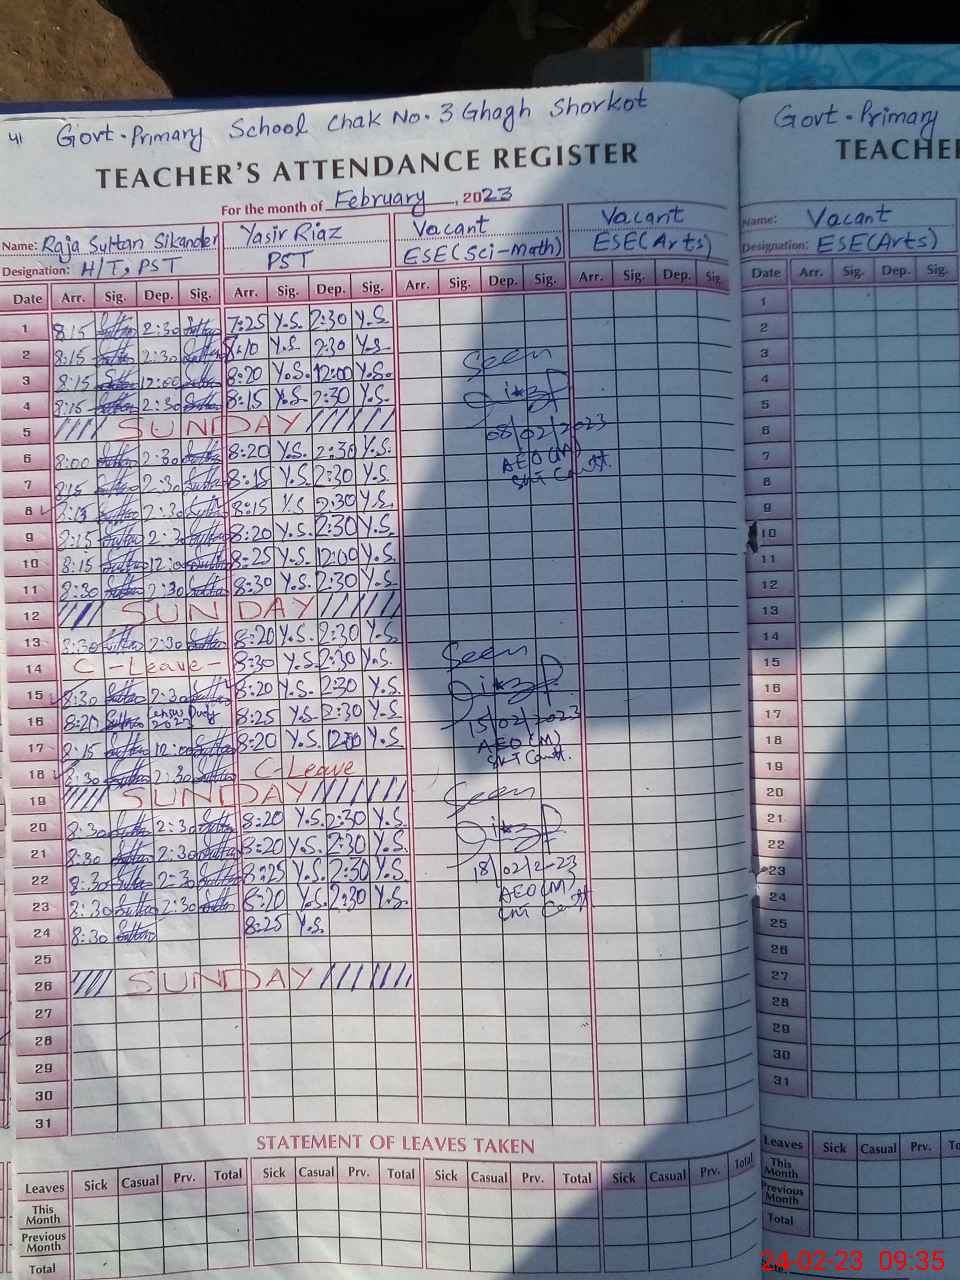 41 Govt. Primary School Chak No. 3 Ghagh Shorkot
TEACHER'S ATTENDANCE REGISTER
For the month of February, 2023
Name: Raja Sultan Sikander Yasir Riaz Vacant Vacant
Designation: H/T, PST PST ESE(Sci-Math) ESE(Arts)
Date Arr. Sig. Dep. Sig. Arr. Sig. Dep. Sig. Arr. Sig. Dep. Sig. Arr. Sig. Dep. Sig.
1 8:15 2:30 7:25 Y.S. 2:30 Y.S.
2 8:15 2:30 8:10 Y.S. 2:30 Y.S. Seen
3 8:15 12:00 8:20 Y.S. 12:00 Y.S.
4 8:15 2:30 8:15 Y.S. 2:30 Y.S.
5 SUNDAY 08/02/2023
6 8:00 2:30 8:20 Y.S. 2:30 Y.S. AEO(M)
7 2:30 8:15 Y.S. 2:30 Y.S.
8 2:30 8:15 Y.S. 2:30 Y.S.
9 8:20 Y.S. 2:30 Y.S.
10 8:15 12:00 8:25 Y.S. 12:00 Y.S.
11 8:30 2:30 8:30 Y.S. 2:30 Y.S.
12 SUNDAY
13 8:30 2:30 8:20 Y.S. 2:30 Y.S. Seen
14 C-Leave- 8:30 Y.S. 2:30 Y.S.
15 8:30 2:30 8:20 Y.S. 2:30 Y.S. 15/02/2023
16 8:20 8:25 Y.S. 2:30 Y.S. AEO(M)
17 12:00 8:20 Y.S. 12:00 Y.S.
18 8:30 2:30 C-Leave
19 SUNDAY Seen
20 8:30 2:30 8:20 Y.S. 2:30 Y.S.
21 8:30 2:30 8:20 Y.S. 2:30 Y.S.
22 8:30 2:30 8:25 Y.S. 2:30 Y.S. 18/02/2023
23 8:30 2:30 8:20 Y.S. 2:30 Y.S. AEO(M)
24 8:30 8:25 Y.S.
25
26 SUNDAY
27
28
29
30
31
STATEMENT OF LEAVES TAKEN
Leaves Sick Casual Prv. Total Sick Casual Prv. Total Sick Casual Prv. Total Sick Casual Prv. Total
This Month
Previous Month
Total
Govt. Primary
TEACHE
Name: Vacant
Designation: ESE(Arts)
Date Arr. Sig. Dep. Sig.
1
2
3
4
5
6
7
8
9
10
11
12
13
14
15
16
17
18
19
20
21
22
23
24
25
26
27
28
29
30
31
Leaves Sick Casual Prv. To
This Month
Previous Month
Total
24-02-23 09:35